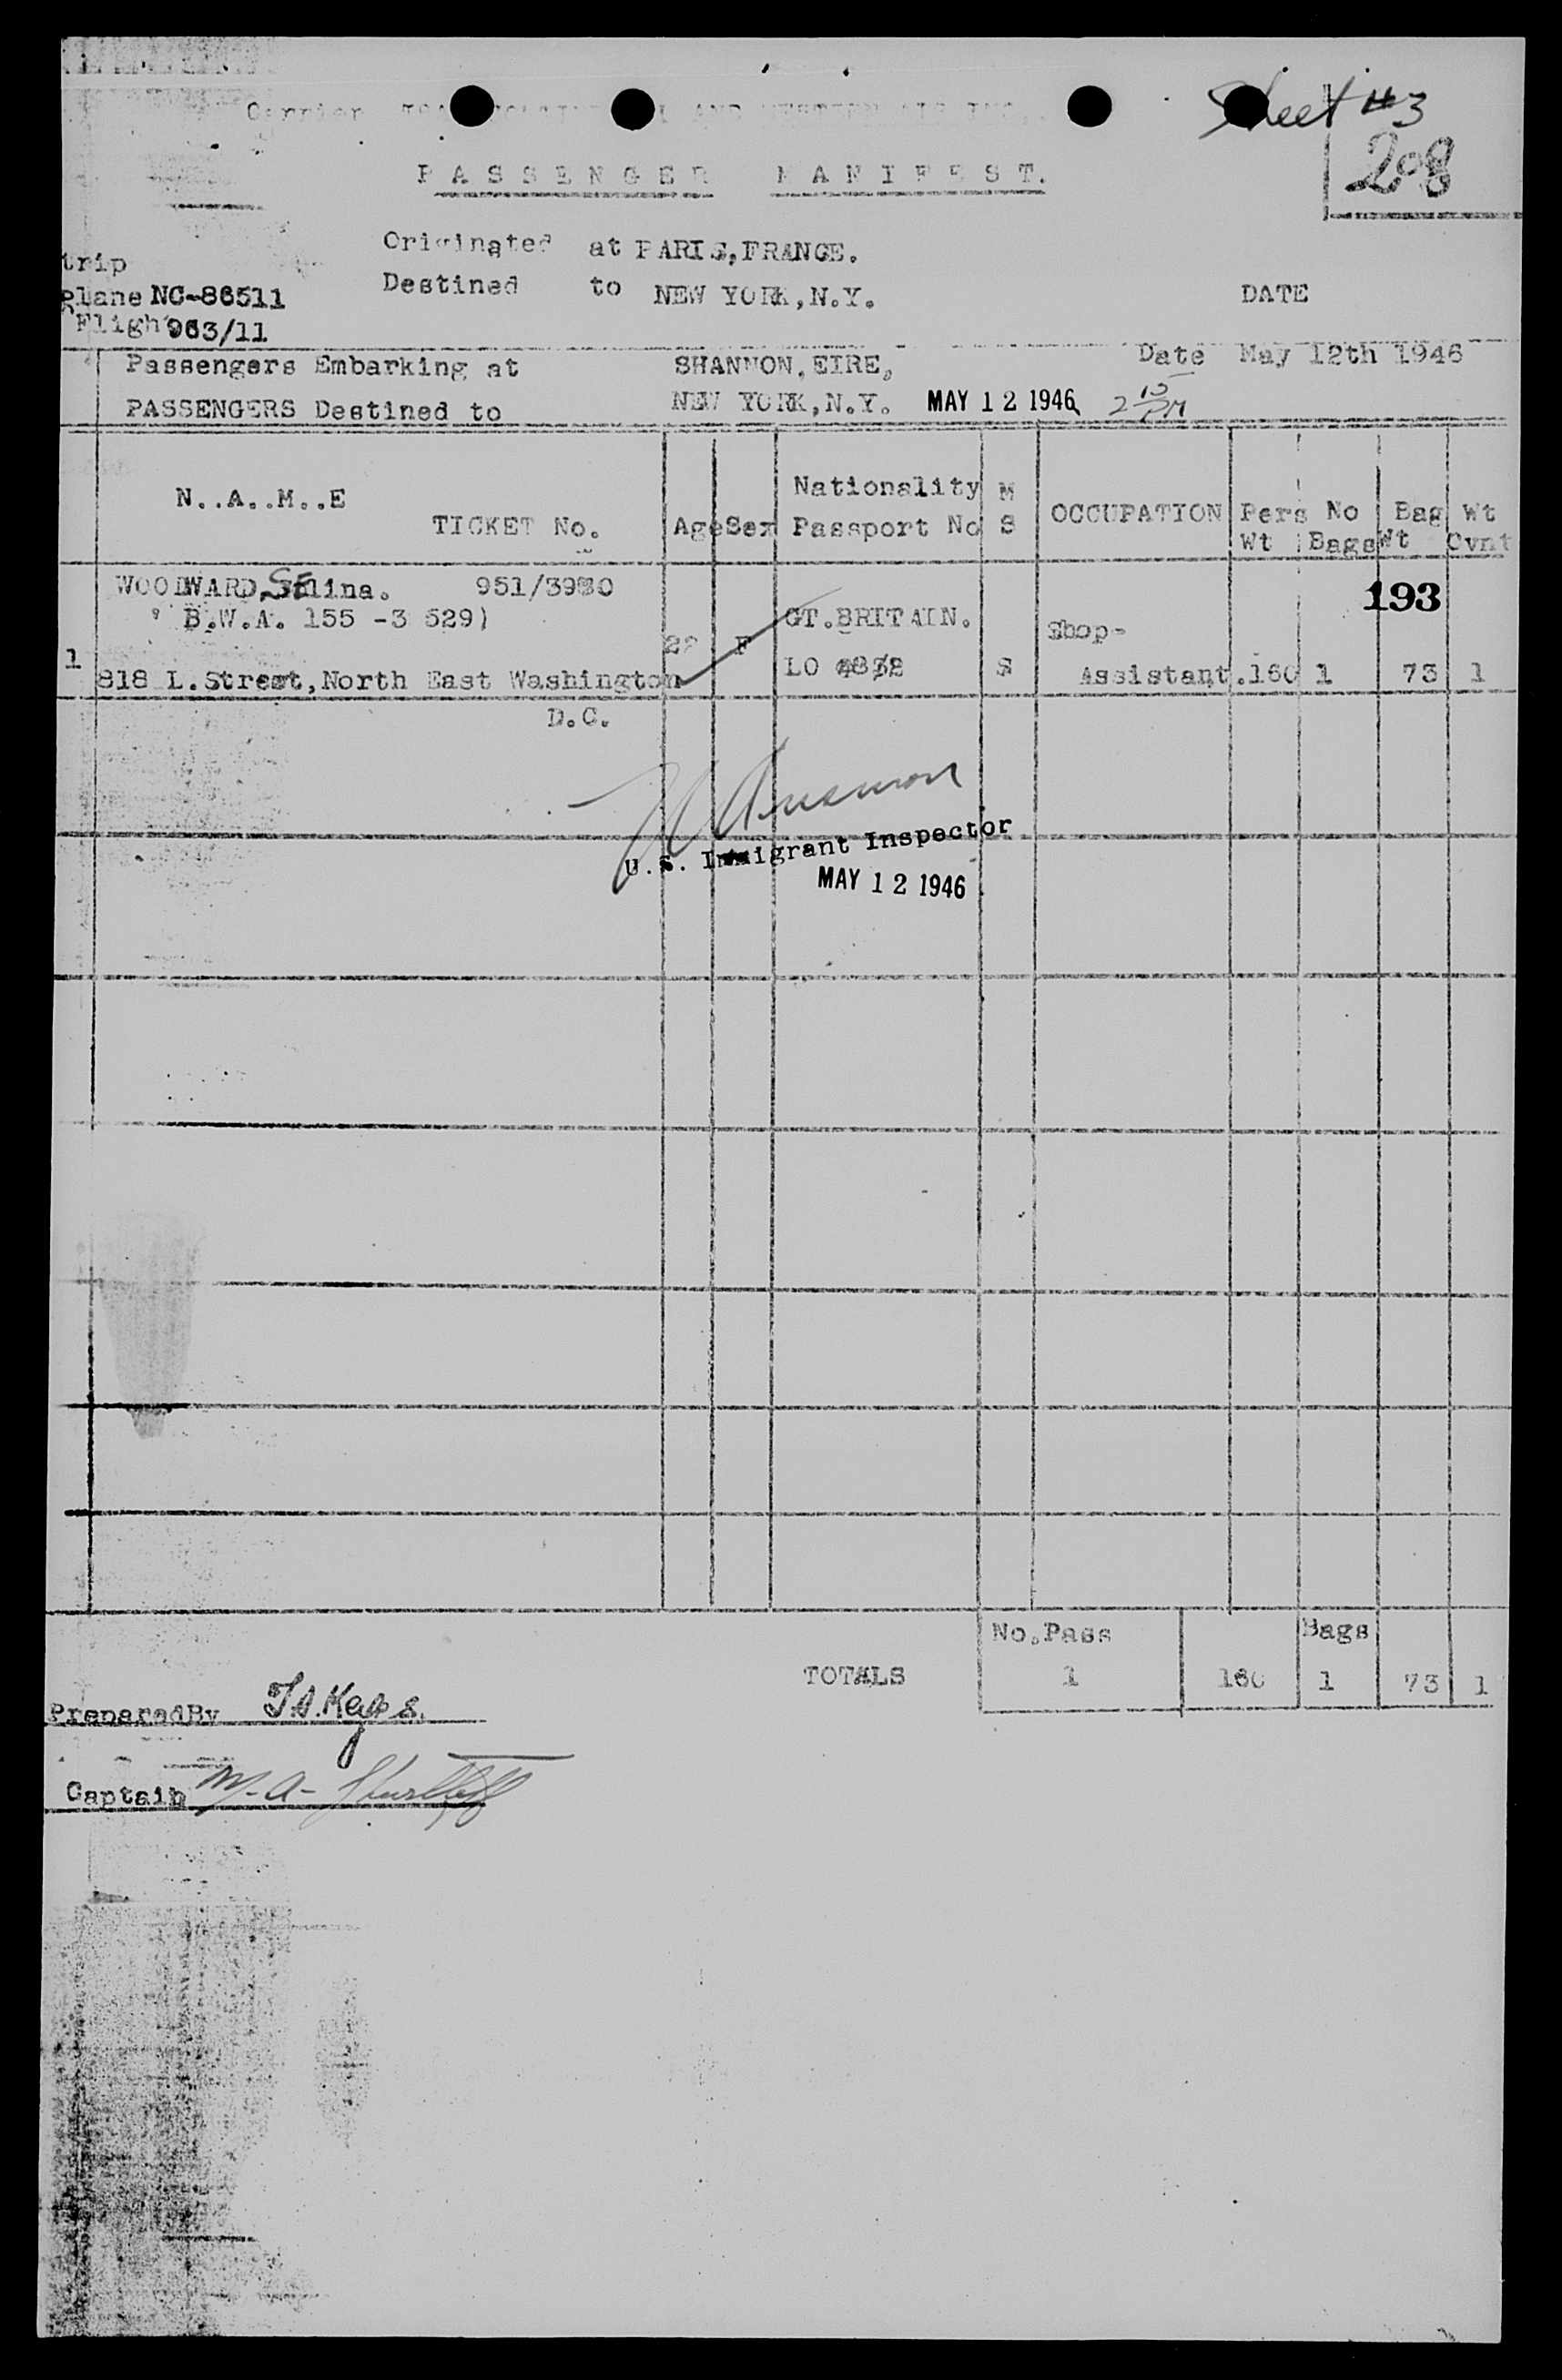 Carrier AND WESTERN AIR INC.
Sheet #3
208
PASSENGER MANIFEST.
trip
Originated at PARIS, FRANCE.
plane NC-86511
Destined to NEW YORK, N.Y.
DATE
Flight 963/11
Passengers Embarking at SHANNON, EIRE, Date May 12th 1946
PASSENGERS Destined to NEW YORK, N.Y. MAY 12 1946 2 15 PM
N..A..M..E TICKET No. Age Sex Nationality Passport No M S OCCUPATION Pers Wt No Bags Bag Wt Wt Ovnt
WOODWARD, SElina. 951/3980
193
B.W.A. 155 -3 529) GT.BRITAIN.
1 22 F Shop-
818 L.Street, North East Washington LO S Assistant. 160 1 73 1
D.C.
U.S. Immigrant Inspector
MAY 12 1946
No.Pass Bags
TOTALS 1 160 1 73 1
PreparedBy
Captain M. A.